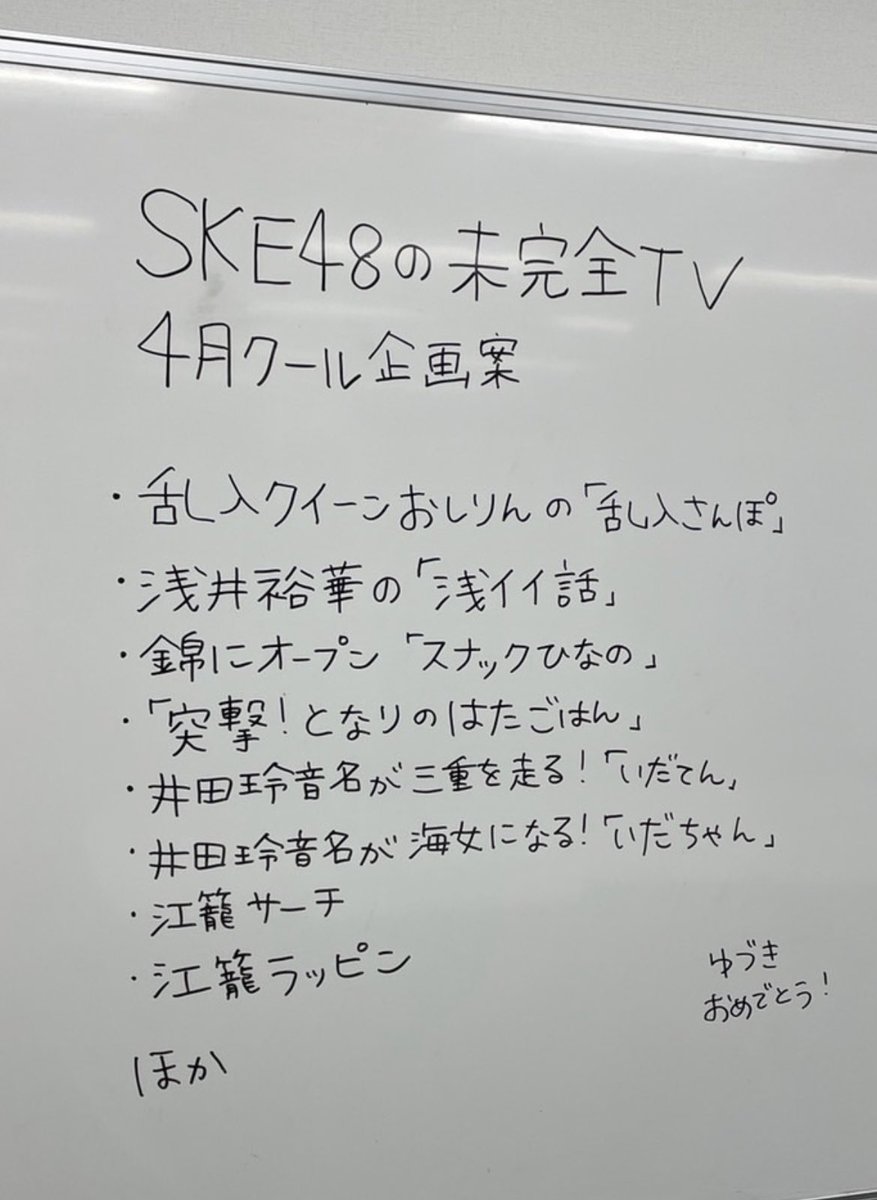 SKE48の未完全TV
4月クール企画案
・乱入クイーンおしりんの「乱入さんぽ」
・浅井裕華の「浅イイ話」
・錦にオープン「スナックひなの」
・「突撃!となりのはたごはん」
・井田玲音名が三重を走る!「いだてん」
・井田玲音名が海女になる!「いだちゃん」
・江籠サーチ
・江籠ラッピン
ほか
ゆづき
おめでとう!